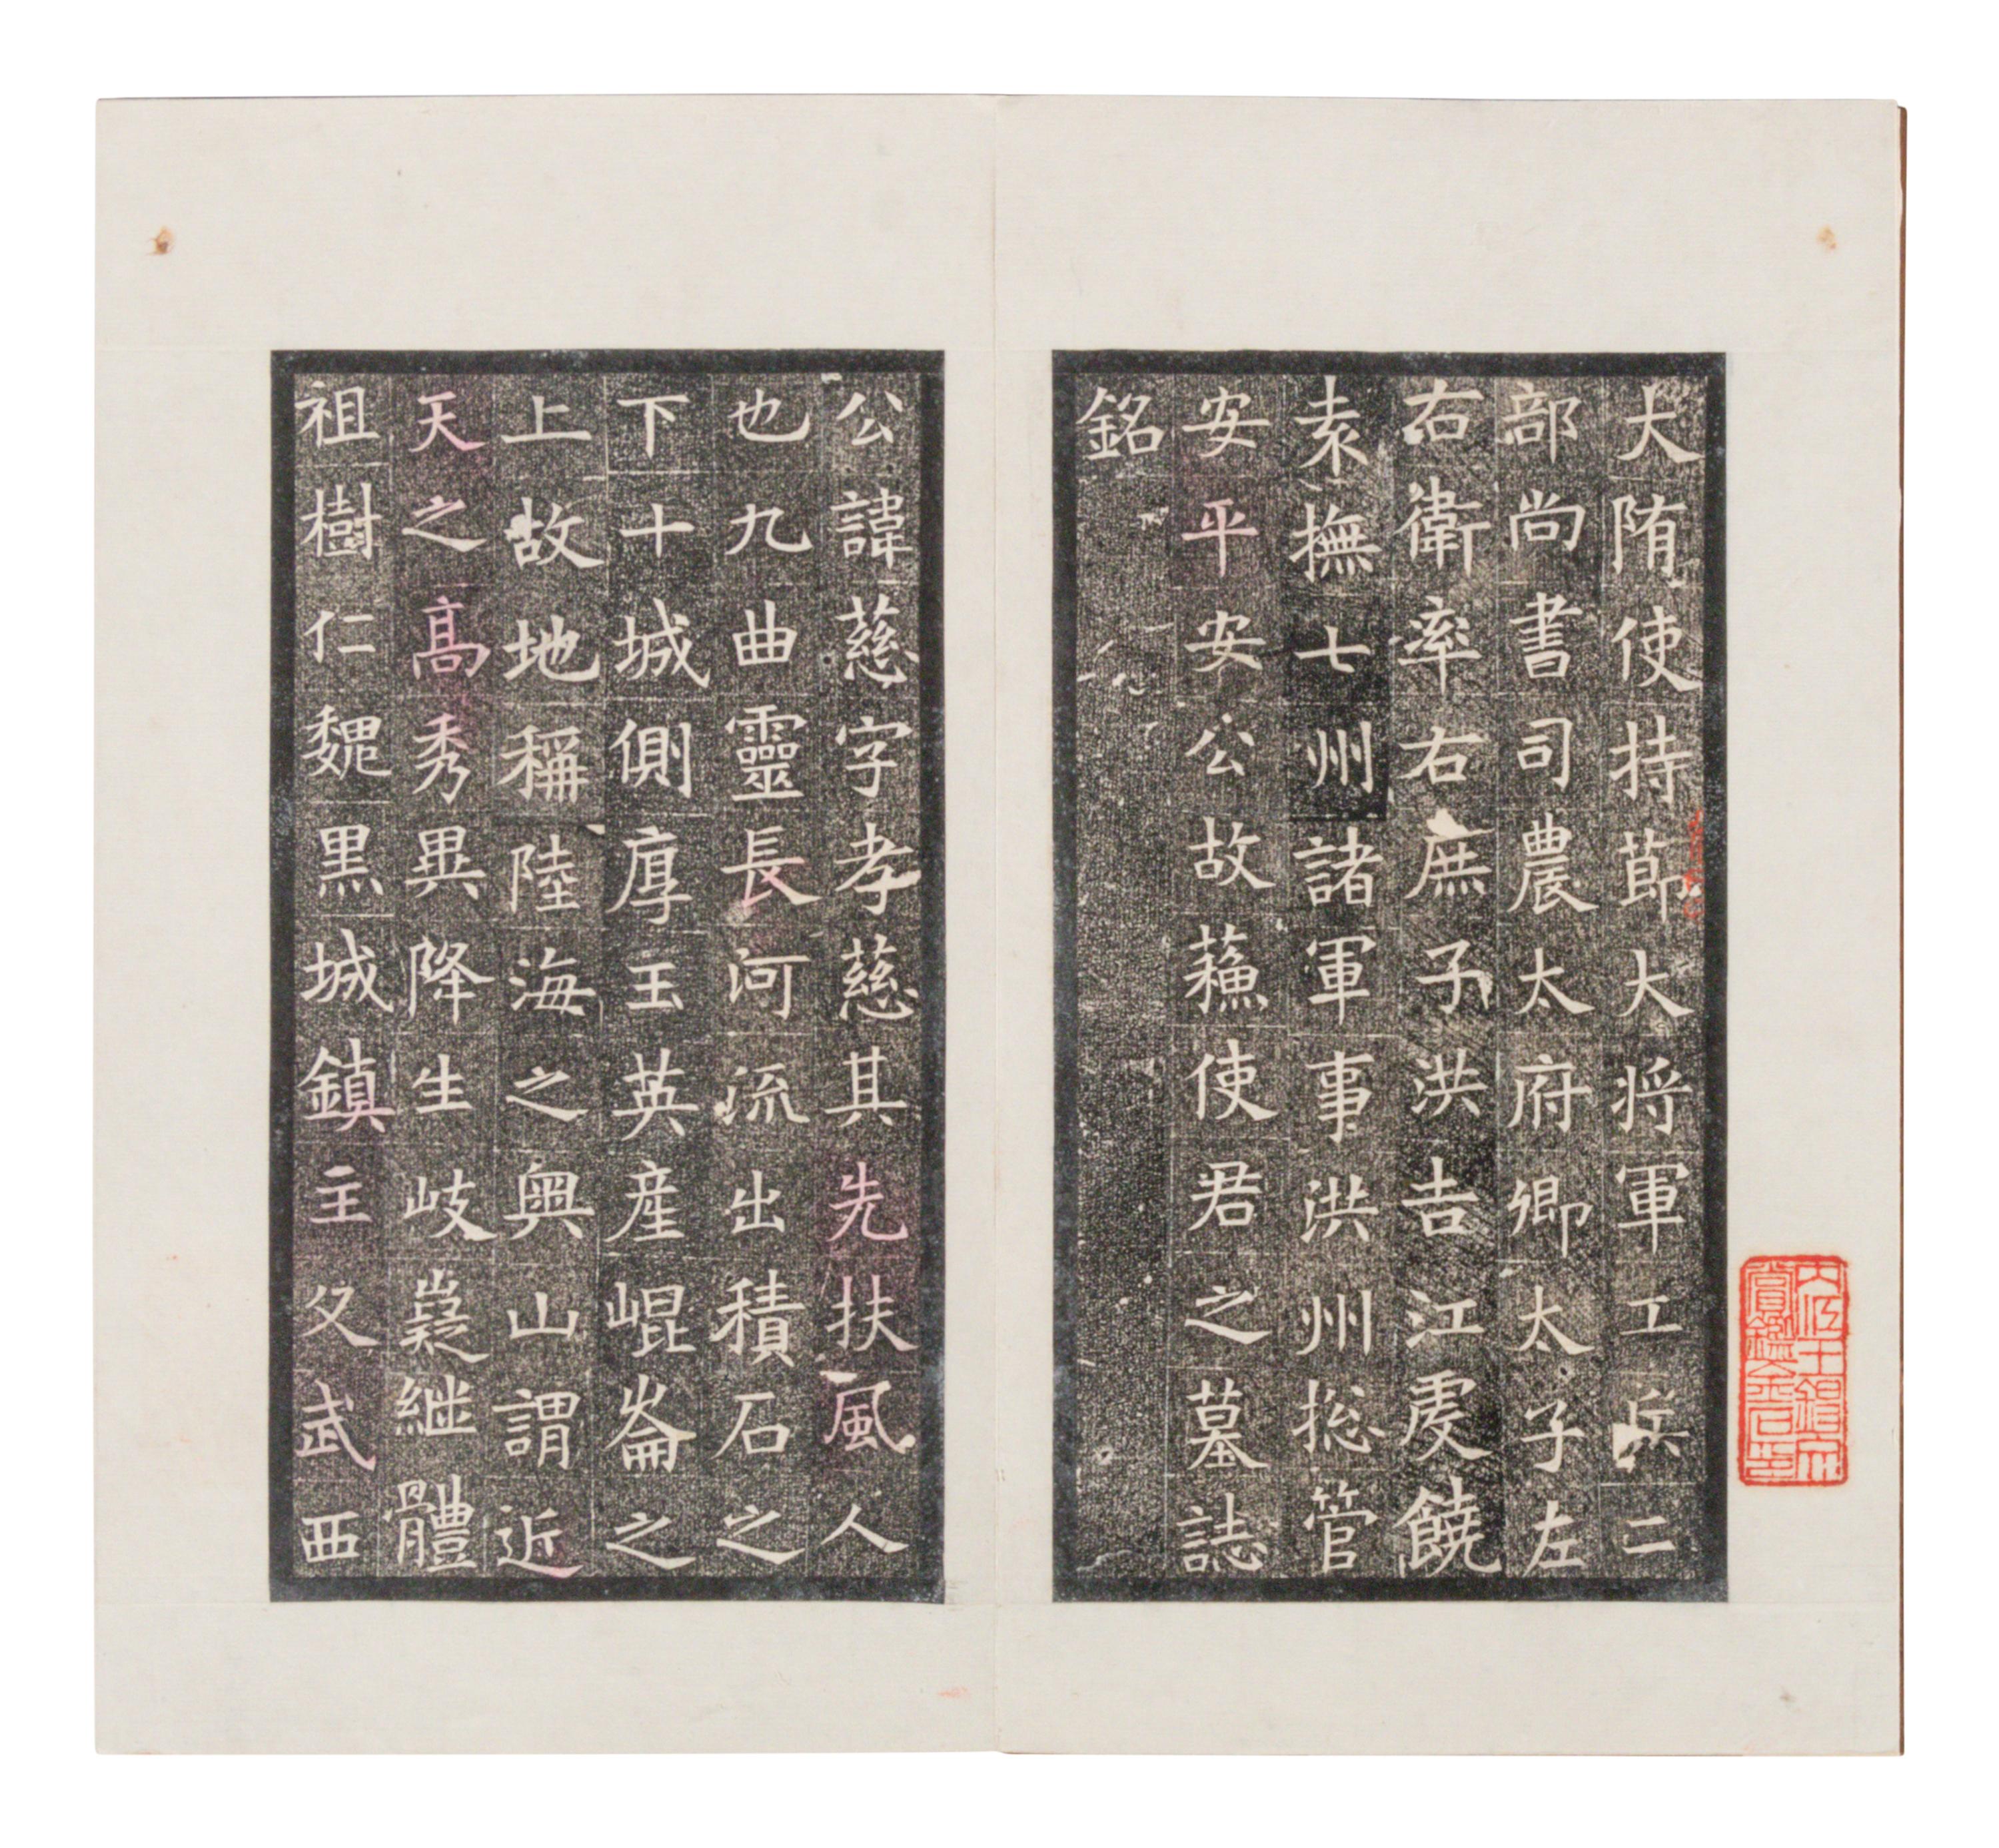 大隋使持節大將軍工兵二
部尚書司農太府卿太子左
右衛率右庶子洪吉江虔饒
袁撫七州諸軍事洪州揔管
安平安公故蘓使君之墓誌
銘
公諱慈字孝慈其先扶風人
也九曲靈長河流出積石之
下十城側厚玉英産崐崙之
上故地稱陸海之奥山謂近
天之髙秀異降生岐嶷繼體
祖樹仁魏黒城鎮主父武西